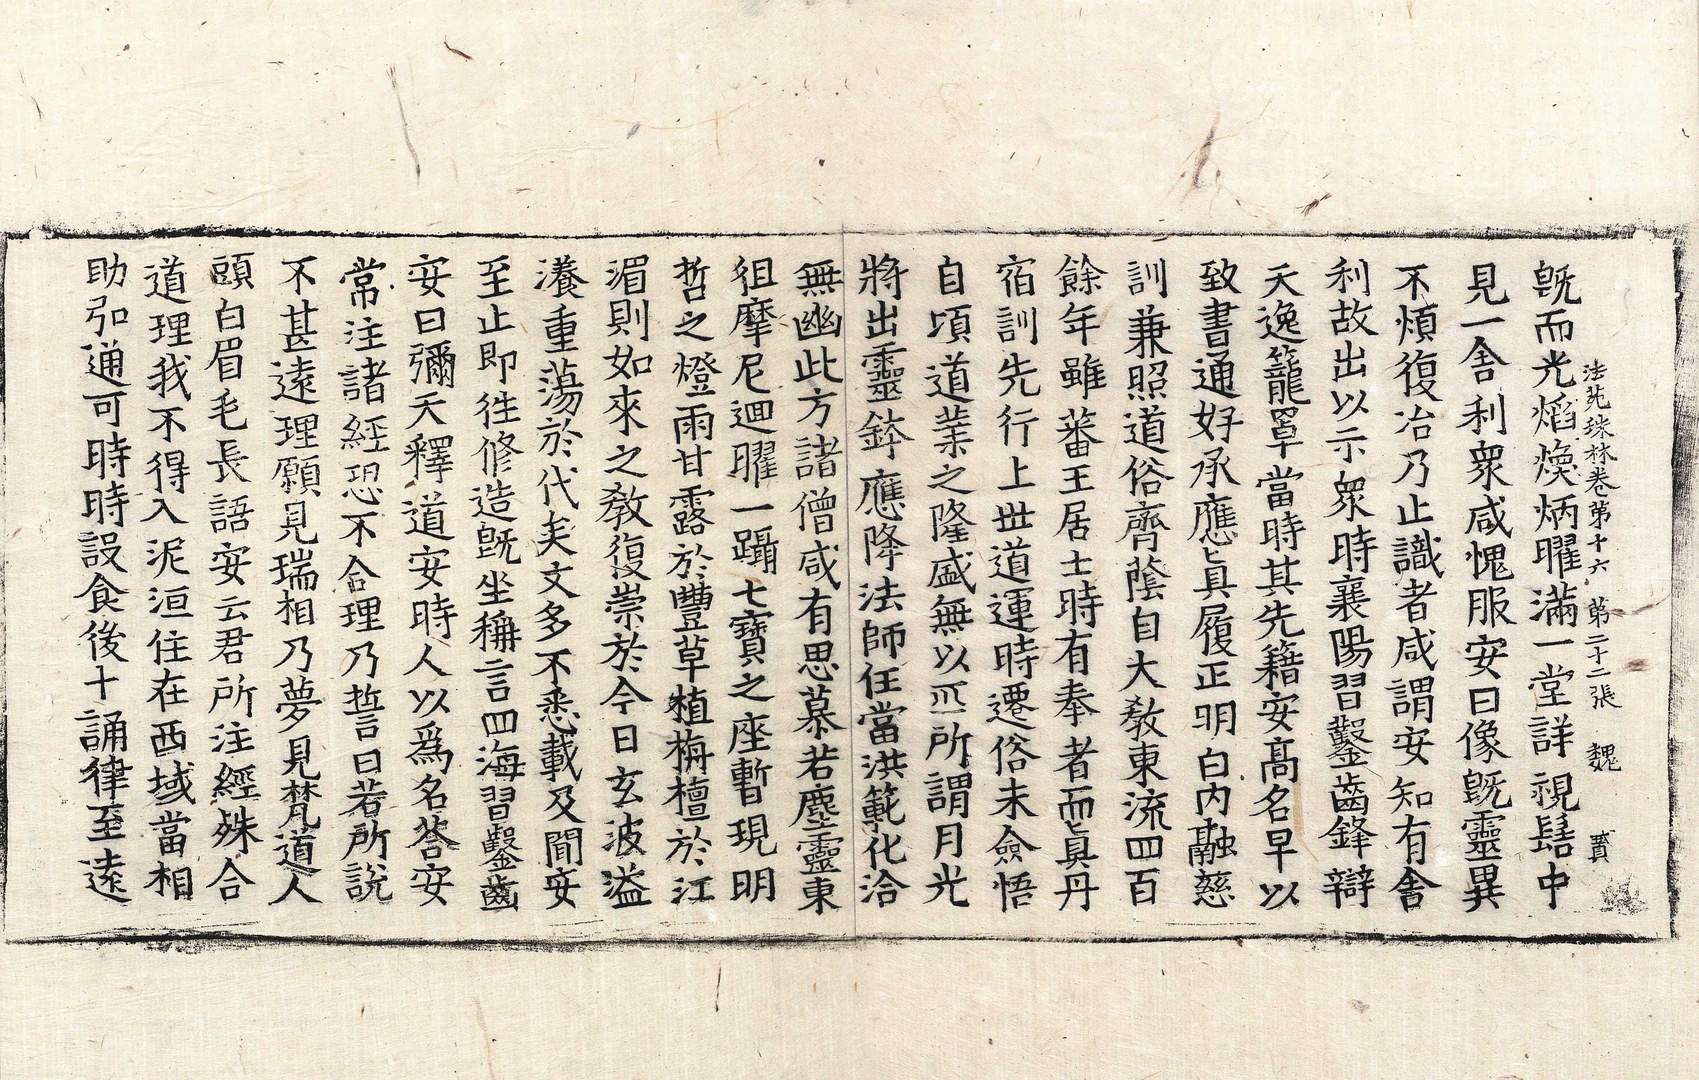 法苑珠林卷第十六 第二十二張 魏 賓
旣而光熖煥炳曜滿一堂詳視髻中
見一舍利衆咸愧服安曰像旣靈異
不煩復冶乃止識者咸謂安知有舍
利故出以示衆時襄陽習鑿齒鋒辯
天逸籠罩當時其先籍安髙名早以
致書通好承應眞履正明白內融慈
訓兼照道俗齊蔭自大敎東流四百
餘年雖蕃王居士時有奉者而眞丹
宿訓先行上世道運時遷俗未僉悟
自頃道業之隆盛無以匹所謂月光
將出靈鉢應降法師任當洪範化洽
無幽此方諸僧咸有思慕若塵靈東
徂摩尼迴曜一躡七寶之座暫現明
哲之燈雨甘露於豐草植栴檀於江
湄則如來之敎復崇於今日玄波溢
漾重蕩於代矣文多不悉載及聞安
至止即徃修造旣坐稱言四海習鑿齒
安曰彌天釋道安時人以爲名荅安
常注諸經恐不合理乃誓曰若所說
不甚遠理願見瑞相乃夢見梵道人
頭白眉毛長語安云君所注經殊合
道理我不得入泥洹住在西域當相
助引通可時時設食後十誦律至遠